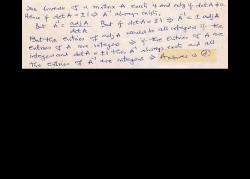 The inverse of a matrix A exists if and only if det A ≠ 0
Hence if det A = ±1 ⇒ A⁻¹ always exists,
But A⁻¹ = adj A / det A But if det A = ±1 ⇒ A⁻¹ = ± adj A
But the entries of adj A would be all integers if the
entries of A are integers ⇒ if the entries of A are
integers and det A = ±1 then A⁻¹ always exists and all
The entries of A⁻¹ are integers ⇒ Answer is